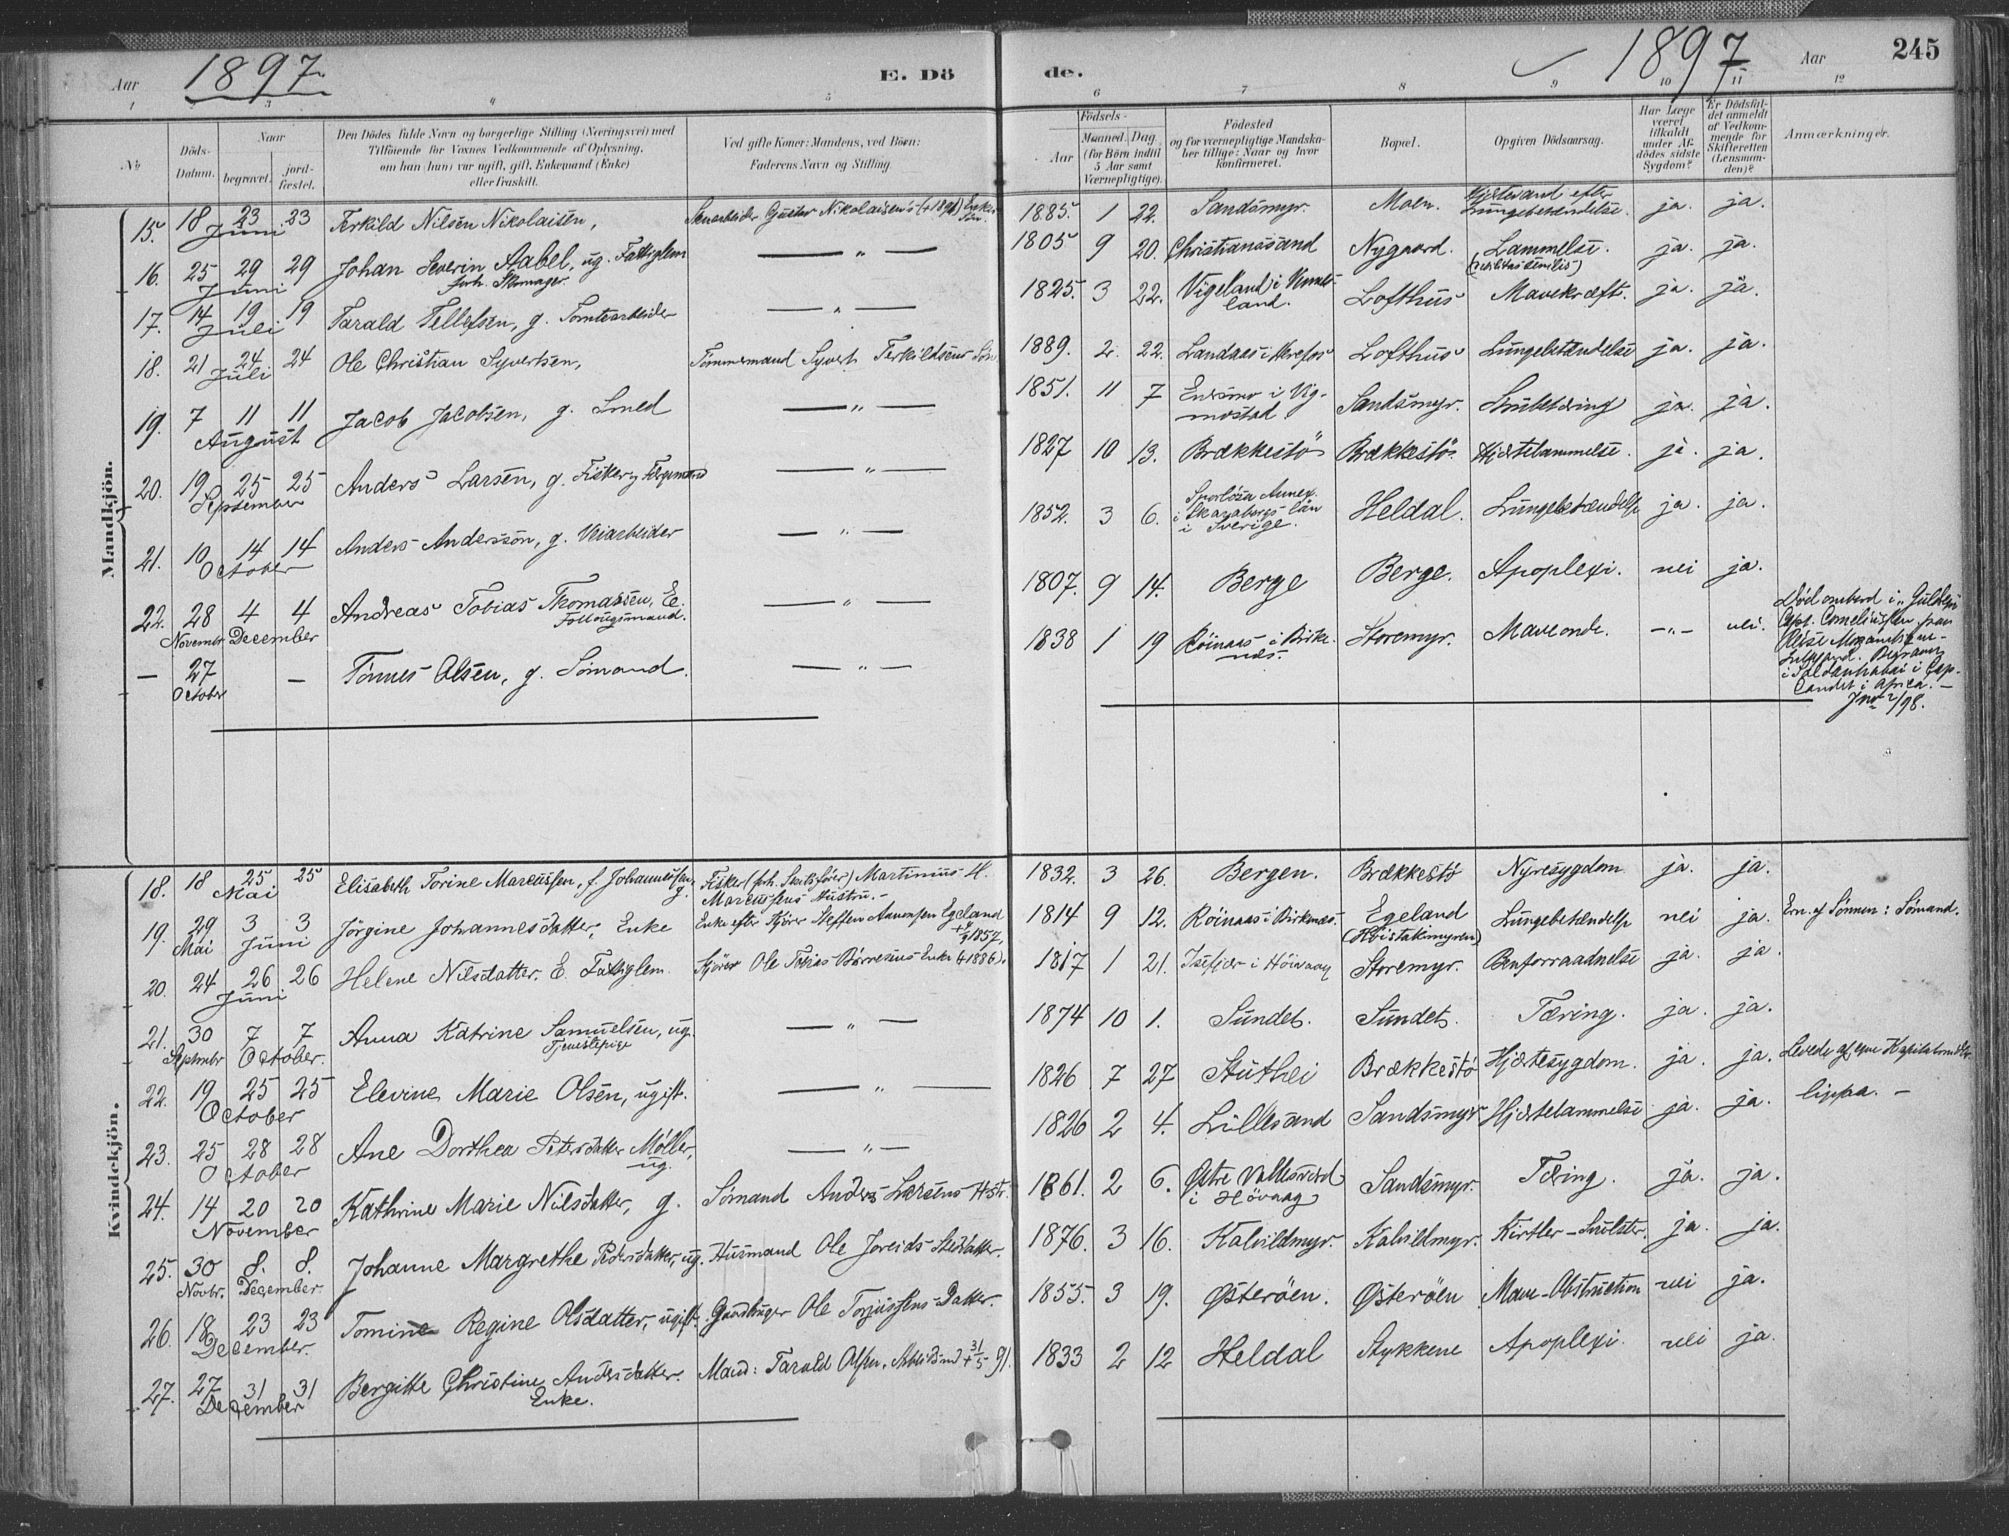 Aar 1897. E. Döde. 1897 Aar 245
1 3 4 5 6 7 8 9 10 11 12
No
Döds-Datum.
Naar
begravet.
jordfæstet.
Den Dödes fulde Navn og borgerlige Stilling (Næringsvei) med
Tilföiende for Voxnes Vedkommende af Oplysning,
om han (hun) var ugift, gift, Enkemand (Enke)
eller fraskilt.
Ved gifte Koner: Mandens, ved Börn:
Faderens Navn og Stilling.
Födsels-
Aar
Maaned. Dag
(for Börn indtil
5 Aar samt
Værnepligtige).
Födested
og for værnepligtige Mandskaber tillige: Naar og hvor
konfirmeret.
Bopæl.
Opgiven Dödsaarsag.
Har Læge
været
tilkaldt
under Afdödes sidste
Sygdom?
Er Dödsfaldet anmeldt
af Vedkommende for
Skifteretten
(Lensmanden)?
Anmærkninger.
Mandkjön.
15. 18 23 23 Juni Terkild Nilsen Nikolaisen, Gustav Nikolaisen's 1885. 1 22. Sandsmyr. Moen. Hjertevand efter Lungebetændelse. ja. ja.
16. 25 29 29 Juni Johan Severin Aabel, ug. Fattiglem forh. Skomager — " — 1805 9 20. Christianssand Nygaard. Lammelse. (debilitas senilis) ja. ja.
17. 14 19 19 Juli Tarald Tellefsen, g. Tomtearbeider — " — 1825. 3 22. Vigeland i Vennesland. Lofthus Mavekræft. ja. ja.
18. 21 24 24 Juli Ole Christian Syvertsen, Tömmermand Syvert Terkildsens Sön 1889. 2. 22. Landaas i Herefos Lofthus Lungebetændelse ja. ja.
19. 7 11 11 August Jacob Jacobsen, g. Smed — " — 1851. 11 7 i Vigmostad Sandsmyr. Strubetæring ja. ja.
20. 19 25 25 September Anders Larsen, g. Fisker og Færgemand — " — 1827 10 13. Brækkestö Brækkestö. Hjertelammelse. ja. ja.
21. 10 14 14 October Anders Andersson, g. Veiarbeider — " — 1852. 3 6. Annex. i Skaraborgs län i Sverige. Heldal. Lungebetændelse ja. ja.
22. 28 4 4 Novembr. December Andreas Tobias Thomassen, E. Föllougsmand. — " — 1807. 9 14. Berge Berge. Apoplexi. nei ja.
— 27 October — Tönnes Olsen, g. Sömand. — " — 1838 1 19 Röinaas i Birkenæs. Storemyr. Maveonde. — " — nei. Död ombord i "Guldregn" Capt. Corneliussen, fra Begravet i Saldanhabai i Caplandet i Africa. — Jnr 2/98.
Kvindekjön.
18. 18 25 25 Mai Elisabeth Torine Marcussen, f. Johannessen, g. Fisker (forh. Skibsförer) Martinius H. Marcussens Hustru. — 1832. 3 26. Bergen. Brækkestö Nyresygdom ja. ja.
19. 29 3 3 Mai Juni Jörgine Johannesdatter, Enke Enke efter Steffen Aanonsen Egeland 1857, 1814 9 12. Röinaas i Birkenæs. Egeland Lungebetændelse nei ja. Ern. af Sönnen: Sömand.
20. 24 26 26 Juni Helene Nilsdatter. E. Fattiglem. Ole Tobias Börresens Enke († 1886). 1817 1 21. Isefjær i Höivaag Storemyr. Benforraadnelse ja. ja.
21. 30 7 7 Septembr October. Anna Katrine Samuelsen, ug. Tjenestepige — " — 1874 10 1. Sundet. Sundet. Tæring. ja. ja.
22. 19 25 25 October Elevine Marie Olsen, ugift. — " — 1826 7 27 Stuthei Brækkestö Hjertesygdom. ja. ja. Levede af egne Kapitalmidler.
23. 25 28 28 October Ane Dorthea Petersdatter Møller, ug. — " — 1826 2 4. Lillesand Sandsmyr Hjertelammelse ja. ja. lippa. —
24. 14 20 20 November Kathrine Marie Nilsdatter, g. Sömand Anders Larsens Hstr. 1861. 2 6. Østre Vallesverd i Hövaag Sandsmyr. Tæring. ja. ja.
25. 30 8. 8. Novbr. December. Johanne Margrethe Pedersdatter, ug. Husmand Ole Joreids Steddatter. 1876. 3 16. Kalvildmyr. Kalvildmyr. Kirtler-Svulster. ja. ja.
26. 18 23 23 December. Tomine Regine Olsdatter, ugift. Gaardbruger Ole Torjussens Datter. 1855. 3 19. Østerøen. Østerøen Mave-Obstruction nei ja.
27. 27 31 31 December Bergitte Christine Andersdatter. Enke. Mand: Tarald Olsen, Arbeidsmd † 31/5 91. 1833 2 12 Heldal Stykkene Apoplexi. nei ja.